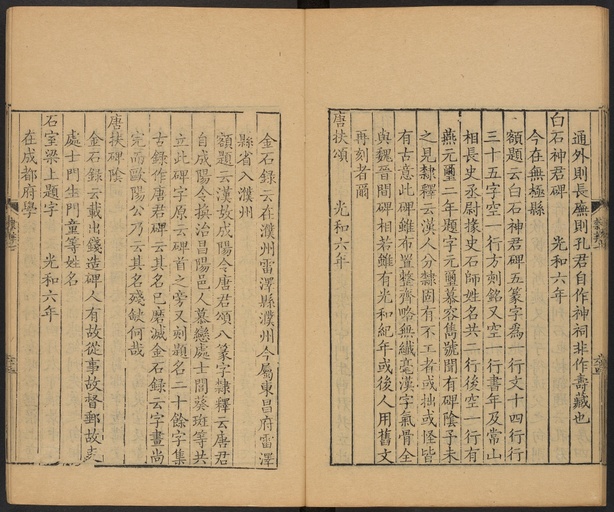 通外則長廡則孔君自作神祠非作壽藏也
白石神君碑　光和六年
今在無極縣
額題云白石神君碑五篆字為一行文十四行行
三十五字空一行方刻銘又空一行書年及常山
相長史丞尉掾史石師姓名共二行後空一行有
燕元璽二年題字元璽慕容雋號聞有碑陰予未
之見隸釋云漢人分隸固有不工者或拙或怪皆
有古意此碑雖布置整齊略無纖毫漢字氣骨全
與魏晉間碑相若雖有光和紀年或後人用舊文
再刻者爾
唐扶頌　光和六年
金石錄云在濮州雷澤縣濮州今屬東昌府雷澤
縣省入濮州
額題云漢故成陽令唐君頌八篆字隸釋云唐君
自成陽令換治昌陽邑人慕戀處士閭葵班等共
立此碑字原云碑首之旁又刻題名二十餘字集
古錄作唐君碑云其名已磨滅金石錄云字畫尚
完而歐陽公乃云其名殘缺何哉
唐扶碑陰
金石錄云載出錢造碑人有故從事故督郵故吏
處士門生門童等姓名
石室梁上題字　光和六年
在成都府學